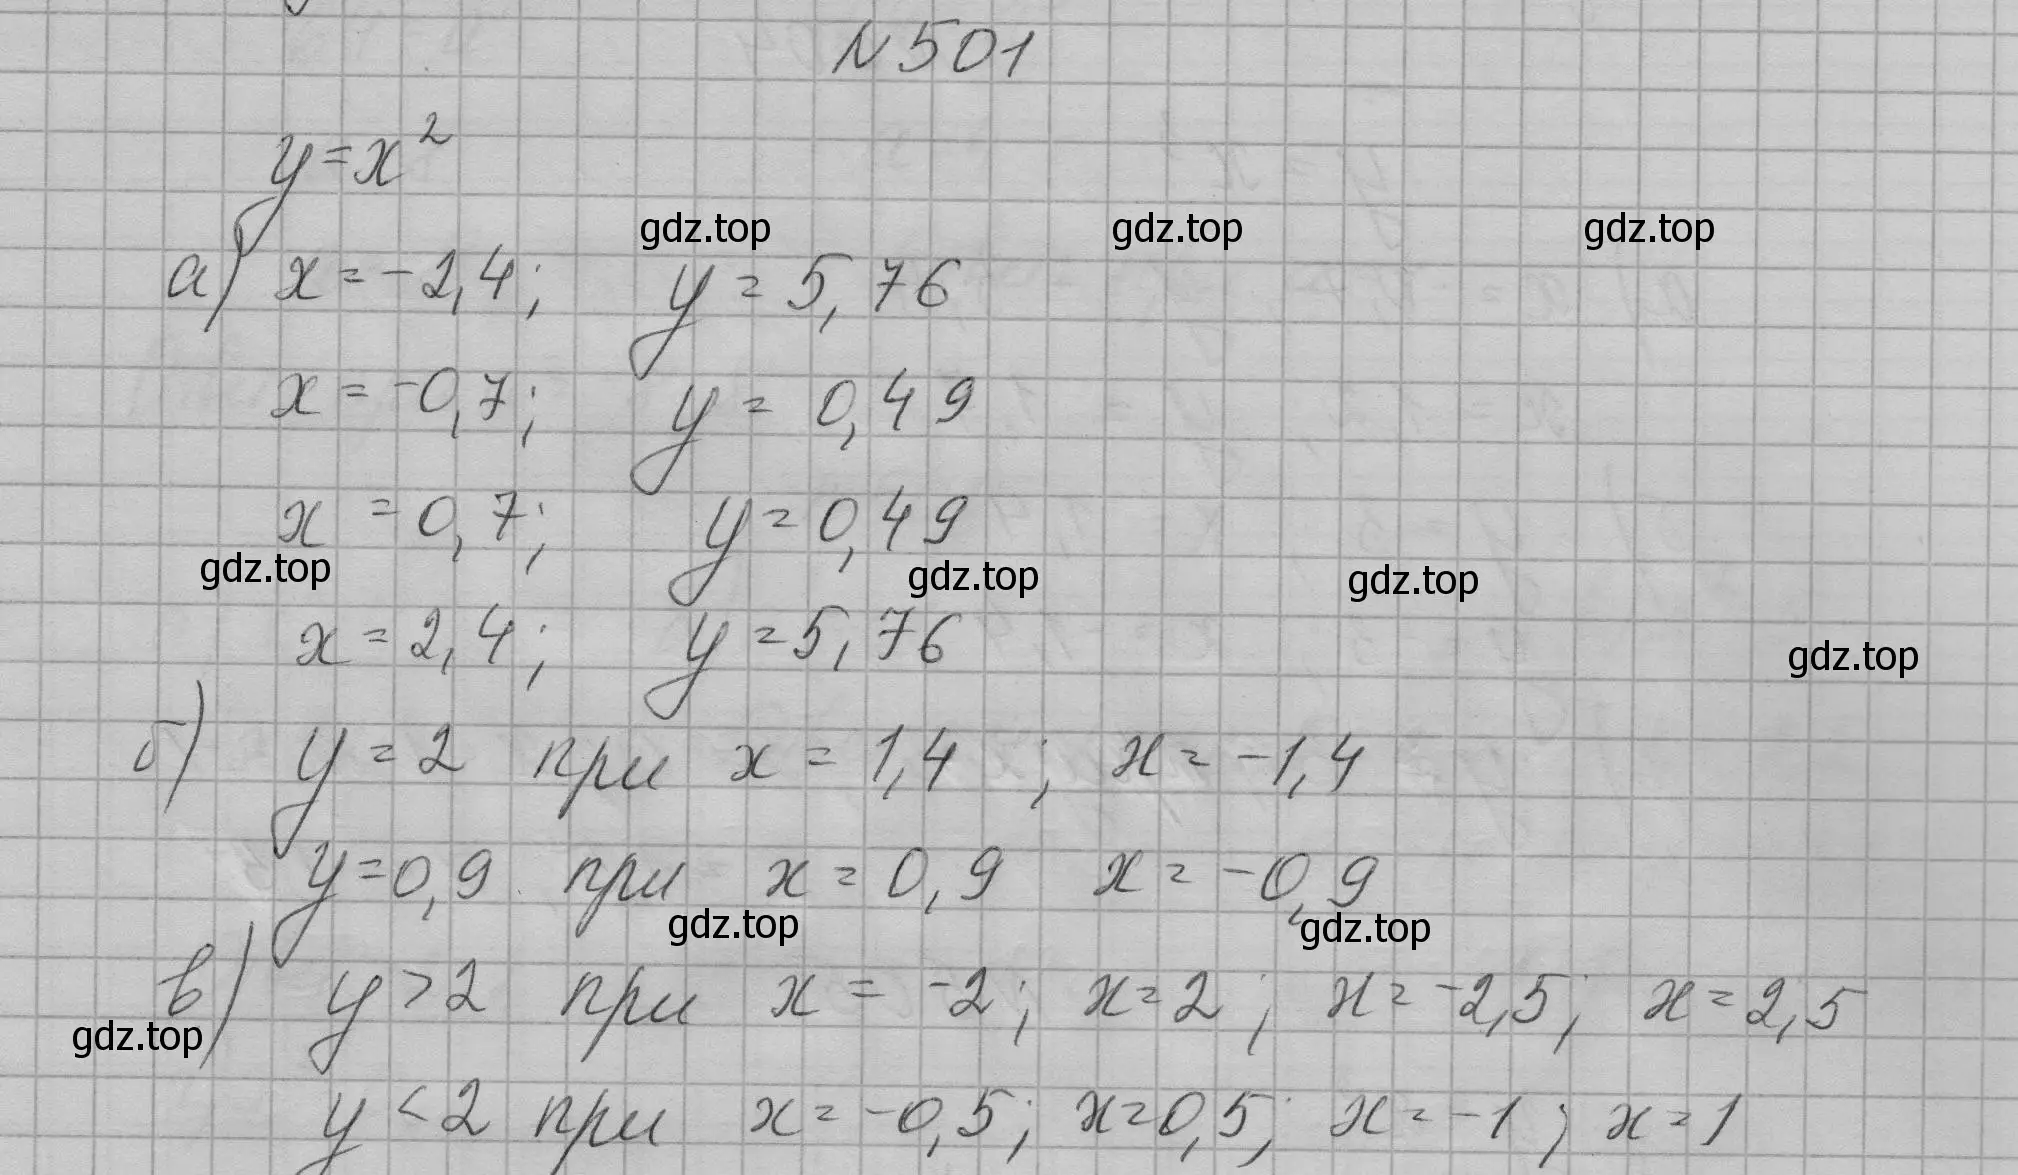 N 501
y = x²
gdz.top gdz.top gdz.top
а) x = -2,4; y = 5,76
x = -0,7; y = 0,49
x = 0,7; y = 0,49
gdz.top gdz.top gdz.top
x = 2,4; y = 5,76
gdz.top
б) y = 2 при x = 1,4 ; x = -1,4
y = 0,9 при x = 0,9 x = -0,9
gdz.top gdz.top
в) y > 2 при x = -2; x = 2; x = -2,5; x = 2,5
gdz.top
y < 2 при x = -0,5; x = 0,5; x = -1; x = 1